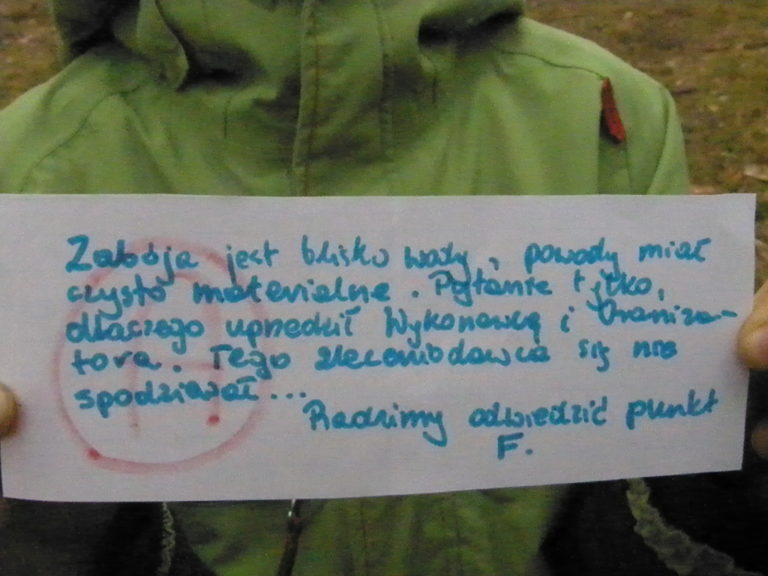 Zabójca jest blisko waszy, powody miał
czysto materialne. Pytanie tylko,
dlaczego uprzedził Wykonawcę i Organiza-
tora. Tego zleceniodawca się nie
spodziewał...
Radzimy odwiedzić punkt
F.
A